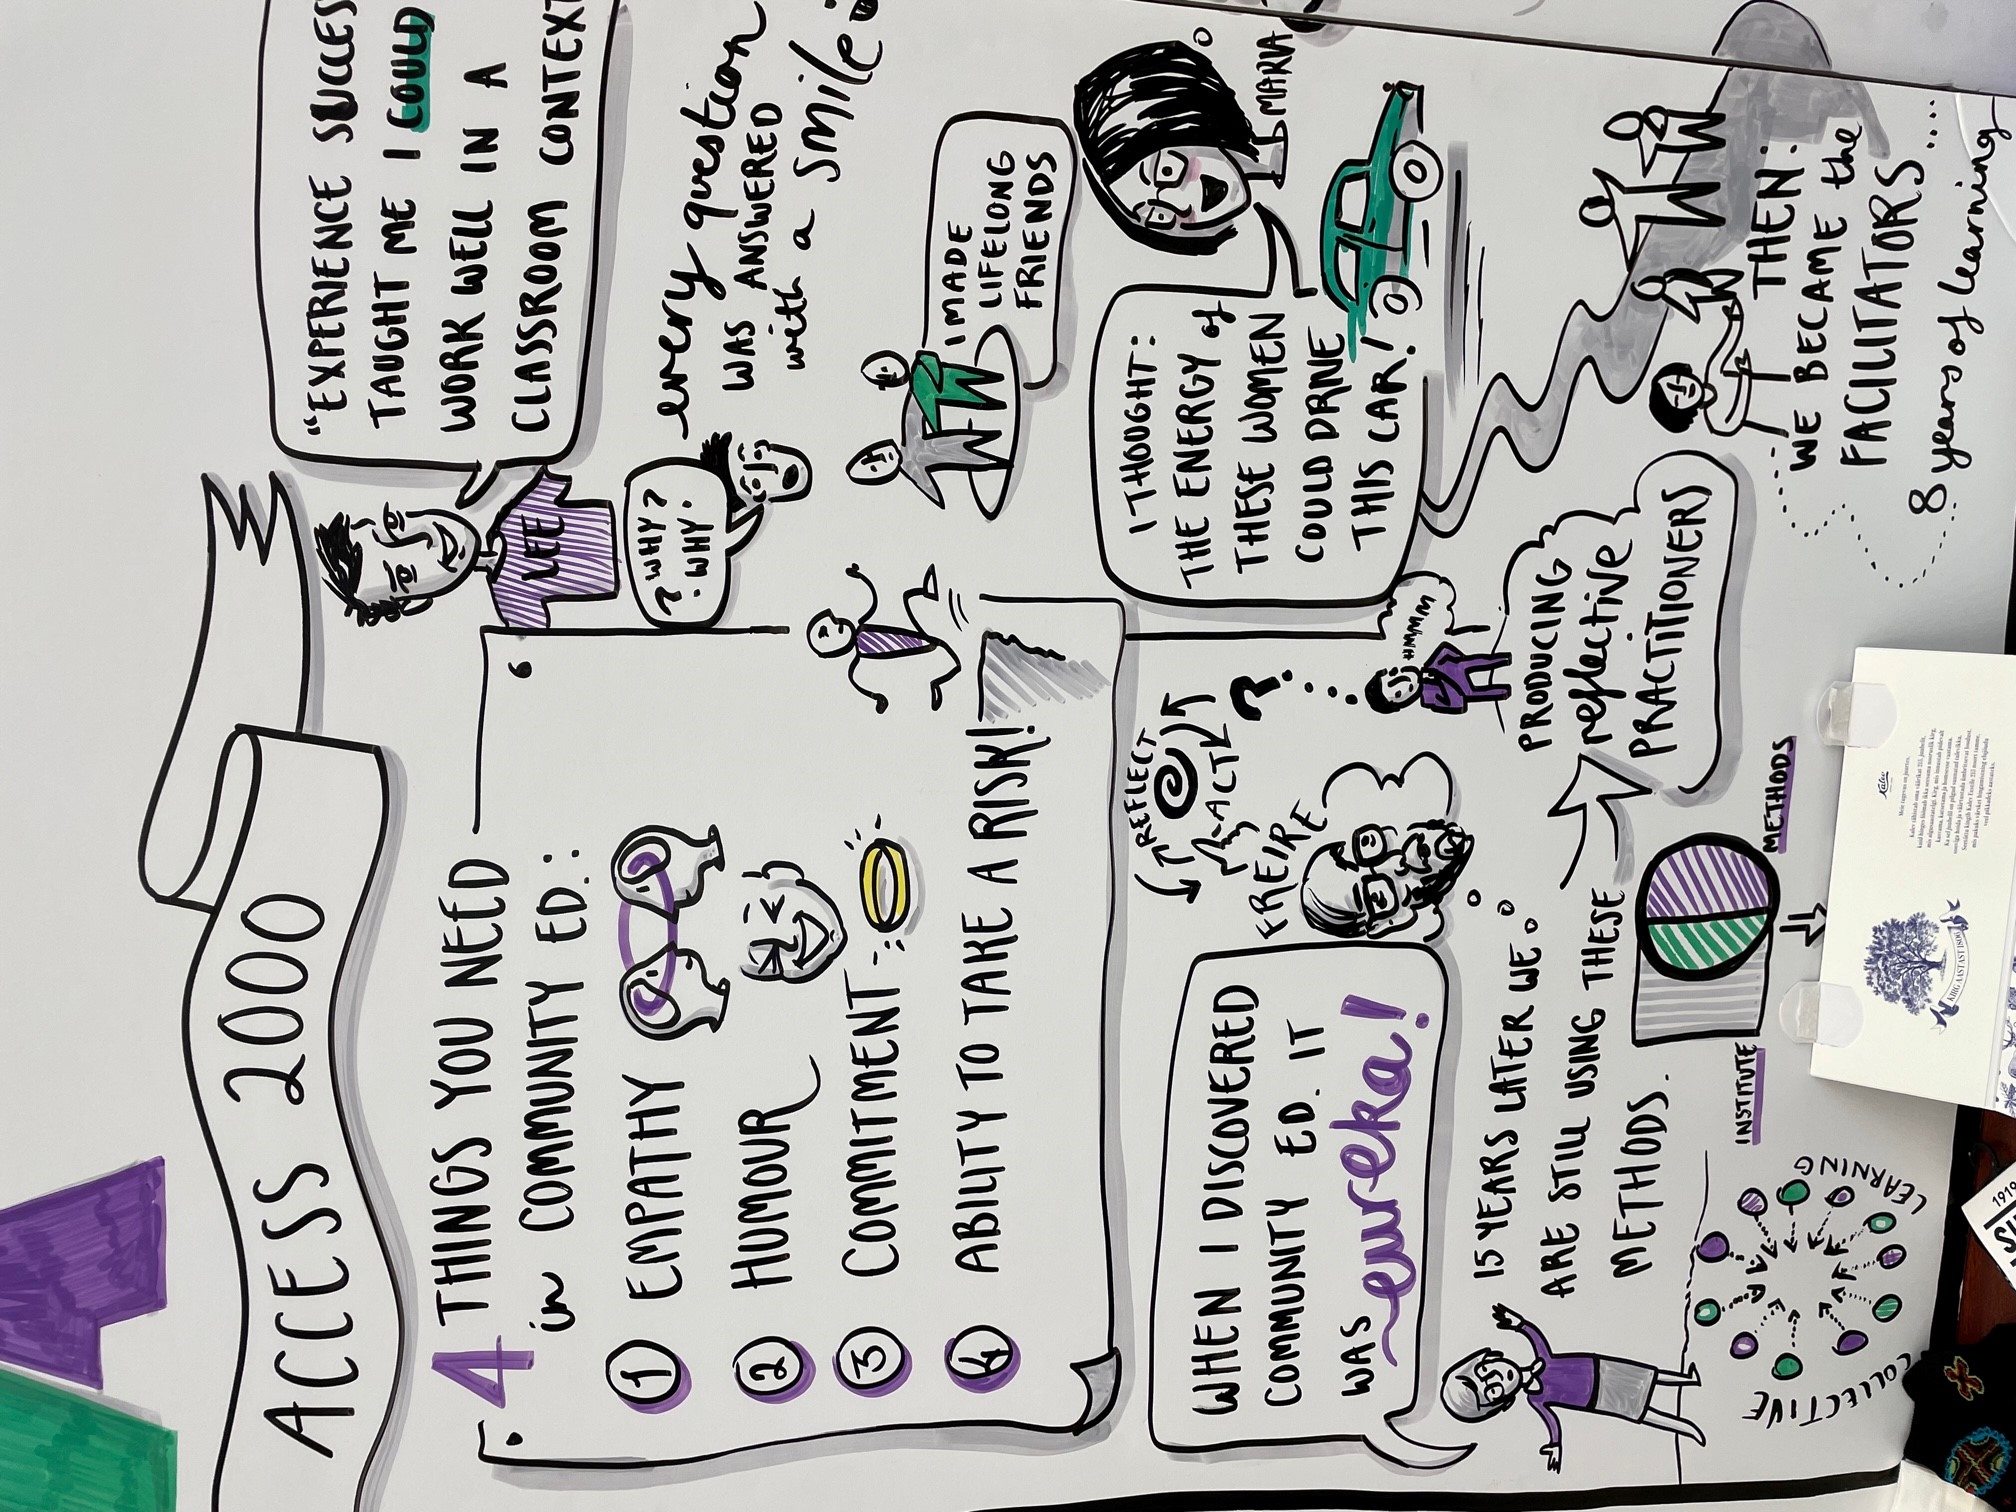 ACCESS 2000
4 THINGS YOU NEED
in COMMUNITY ED.:
1 EMPATHY
2 HUMOUR
3 COMMITMENT
4 ABILITY TO TAKE A RISK!
LEE
"EXPERIENCE
TAUGHT ME I COULD
WORK WELL IN A
CLASSROOM CONTEXT
? WHY?
? WHY.
every question
WAS ANSWERED
with a smile
I MADE
LIFELONG
FRIENDS
MARIA
I THOUGHT:
THE ENERGY of
THESE WOMEN
COULD DRIVE
THIS CAR!
WHEN I DISCOVERED
COMMUNITY ED. IT
WAS eureka!
REFLECT
ACT
?
FREIRE
15 YEARS LATER WE
ARE STILL USING THESE
METHODS.
HMMM
PRODUCING
reflective
PRACTITIONERS
THEN:
WE BECAME the
FACILITATORS....
8 years of learning
INSTITUTE
METHODS
COLLECTIVE
LEARNING
Kalev
KIRG AASTAST 1806
1919